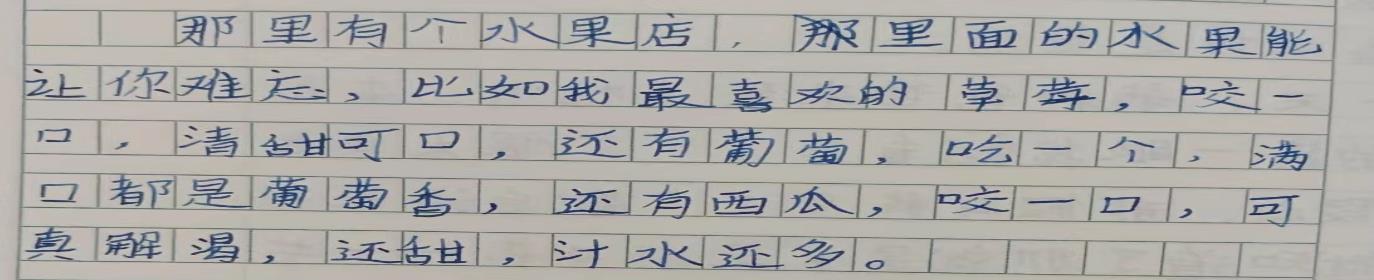 那里有个水果店,那里面的水果能
让你难忘、比如我最喜欢的草莓,咬一
口,清甜可口,还有葡萄,吃一个,满
口都是葡萄香,还有西瓜,咬一口,可
真解渴,还甜,汁水还多。